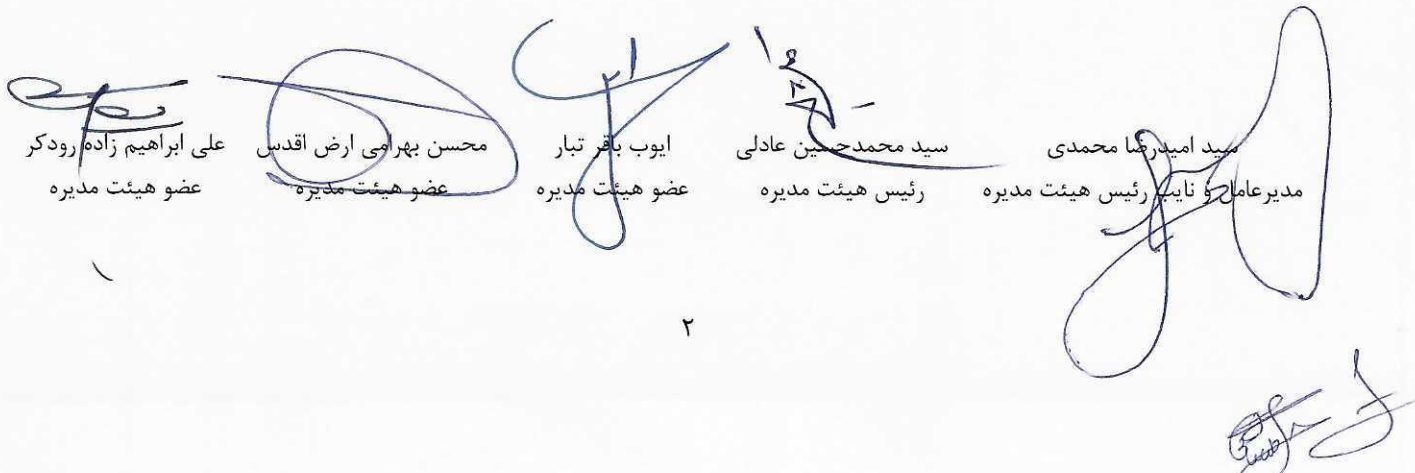 سید امیدرضا محمدی
مدیرعامل و نایب رئیس هیئت مدیره
سید محمدحسین عادلی
رئیس هیئت مدیره
ایوب باقر تبار
عضو هیئت مدیره
محسن بهرامی ارض اقدس
عضو هیئت مدیره
علی ابراهیم زاده رودکر
عضو هیئت مدیره
۲